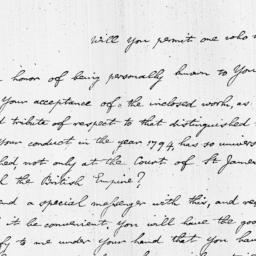 Will you permit one who
honor of being personally known to You
Your acceptance of, the inclosed work, as
tribute of respect to that distinguished
your conduct in the year 1794, has so univers
not only at the Court of St James
the British Empire?
a special messenger with this, and
it be convenient, You will have the good
to me under Your hand that You have